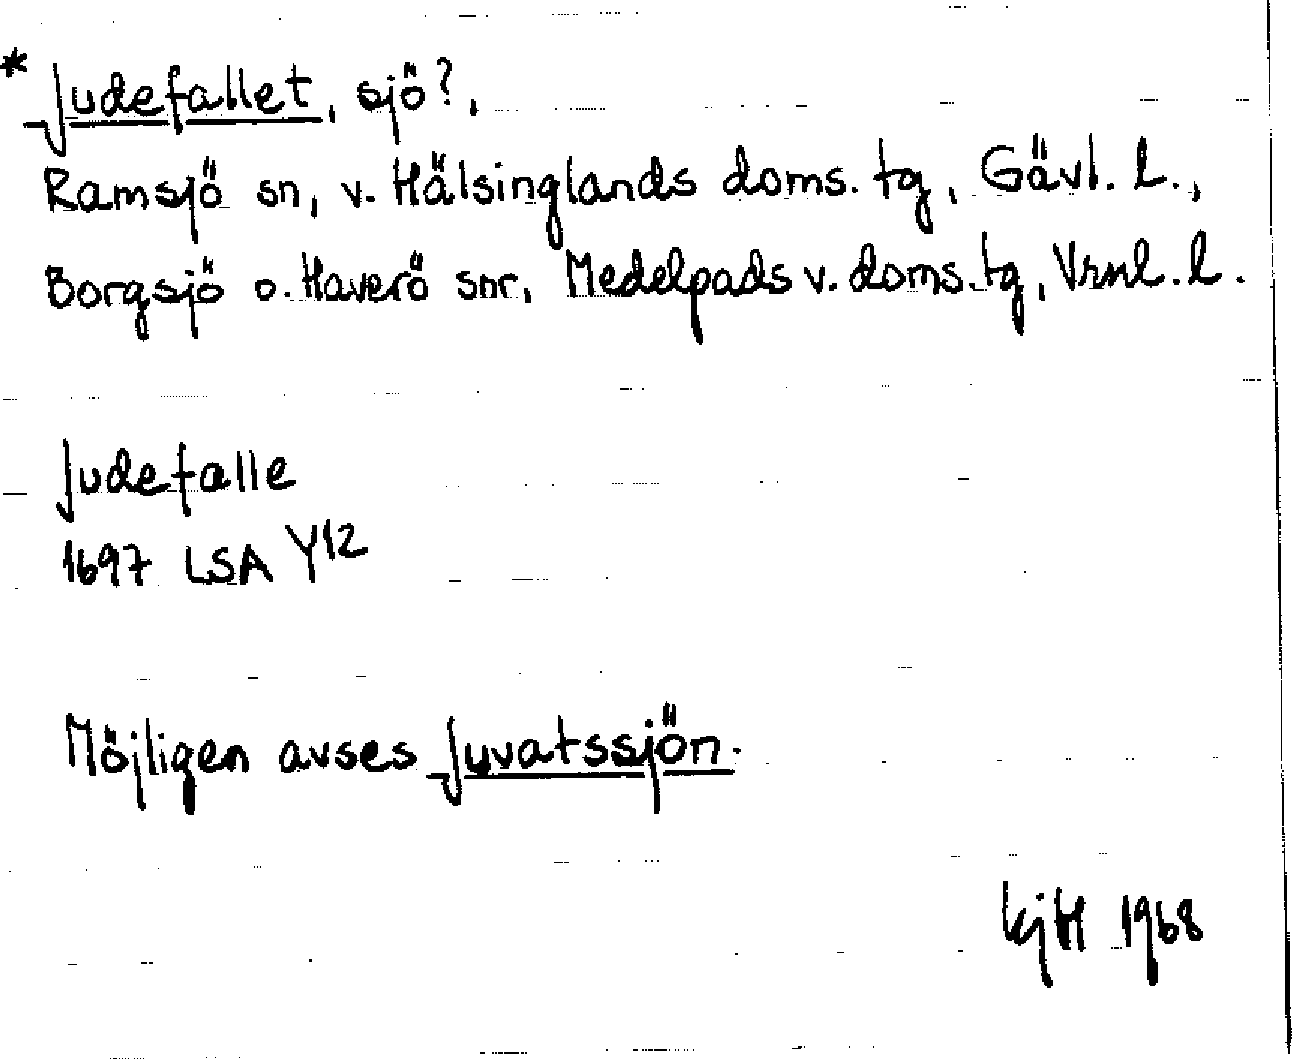 * Judefallet, sjö?,
Ramsjö sn, v. Hälsinglands doms. tg, Gävl. l.,
Borgsjö o. Haverö snr, Medelpads v. doms. tg, Vrnl. l.
Judefalle
1697 LSA Y12
Möjligen avses Juvatssjön.
KjH 1968